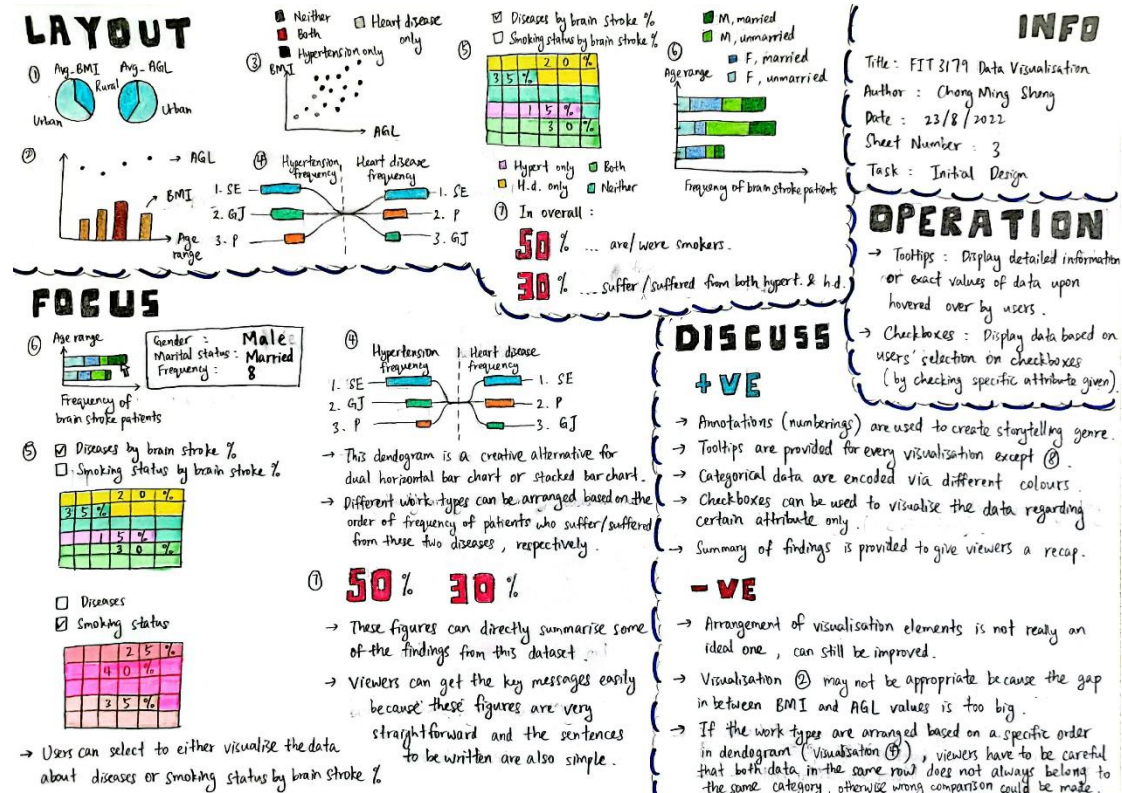 LAYOUT
①
Avg-BMI
Avg-AGL
Rural
Urban
Urban
②
AGL
BMI
Age
range
Neither
Both
Hypertension only
Heart disease
only
③
BMI
AGL
④
Hypertension
frequency
Heart disease
frequency
1. SE
2. GJ
3. P
1. SE
2. P
3. GJ
⑤
Diseases by brain stroke %
Smoking status by brain stroke %
20%
35%
15%
30%
Hypert only
Both
H.d. only
Neither
⑥
M, married
M, unmarried
F, married
F, unmarried
Age range
Frequency of brain stroke patients
⑦ In overall :
50 % ... are/were smokers.
30 % ... suffer/suffered from both hypert. & h.d.
INFO
Title : FIT3179 Data Visualisation
Author : Chong Ming Sheng
Date : 23/8/2022
Sheet Number : 3
Task : Initial Design
OPERATION
→ Tooltips : Display detailed information
or exact values of data upon
hovered over by users.
→ Checkboxes : Display data based on
users' selection on checkboxes
(by checking specific attribute given).
FOCUS
⑥
Age range
Frequency of
brain stroke patients
Gender : Male
Marital status : Married
Frequency : 8
⑤
Diseases by brain stroke %
Smoking status by brain stroke %
20%
35%
15%
30%
Diseases
Smoking status
25%
40%
35%
→ Users can select to either visualise the data
about diseases or smoking status by brain stroke %
④
Hypertension
frequency
Heart disease
frequency
1. SE
2. GJ
3. P
1. SE
2. P
3. GJ
→ This dendogram is a creative alternative for
dual horizontal bar chart or stacked bar chart.
→ Different work types can be arranged based on the
order of frequency of patients who suffer/suffered
from these two diseases, respectively.
⑦ 50% 30%
→ These figures can directly summarise some
of the findings from this dataset.
→ Viewers can get the key messages easily
because these figures are very
straightforward and the sentences
to be written are also simple.
DISCUSS
+VE
→ Annotations (numberings) are used to create storytelling genre.
→ Tooltips are provided for every visualisation except ⑧.
→ Categorical data are encoded via different colours.
→ Checkboxes can be used to visualise the data regarding
certain attribute only.
→ Summary of findings is provided to give viewers a recap.
-VE
→ Arrangement of visualisation elements is not really an
ideal one, can still be improved.
→ Visualization ② may not be appropriate because the gap
in between BMI and AGL values is too big.
→ If the work types are arranged based on a specific order
in dendogram (visualisation ④), viewers have to be careful
that both data in the same row does not always belong to
the same category, otherwise wrong comparison could be made.